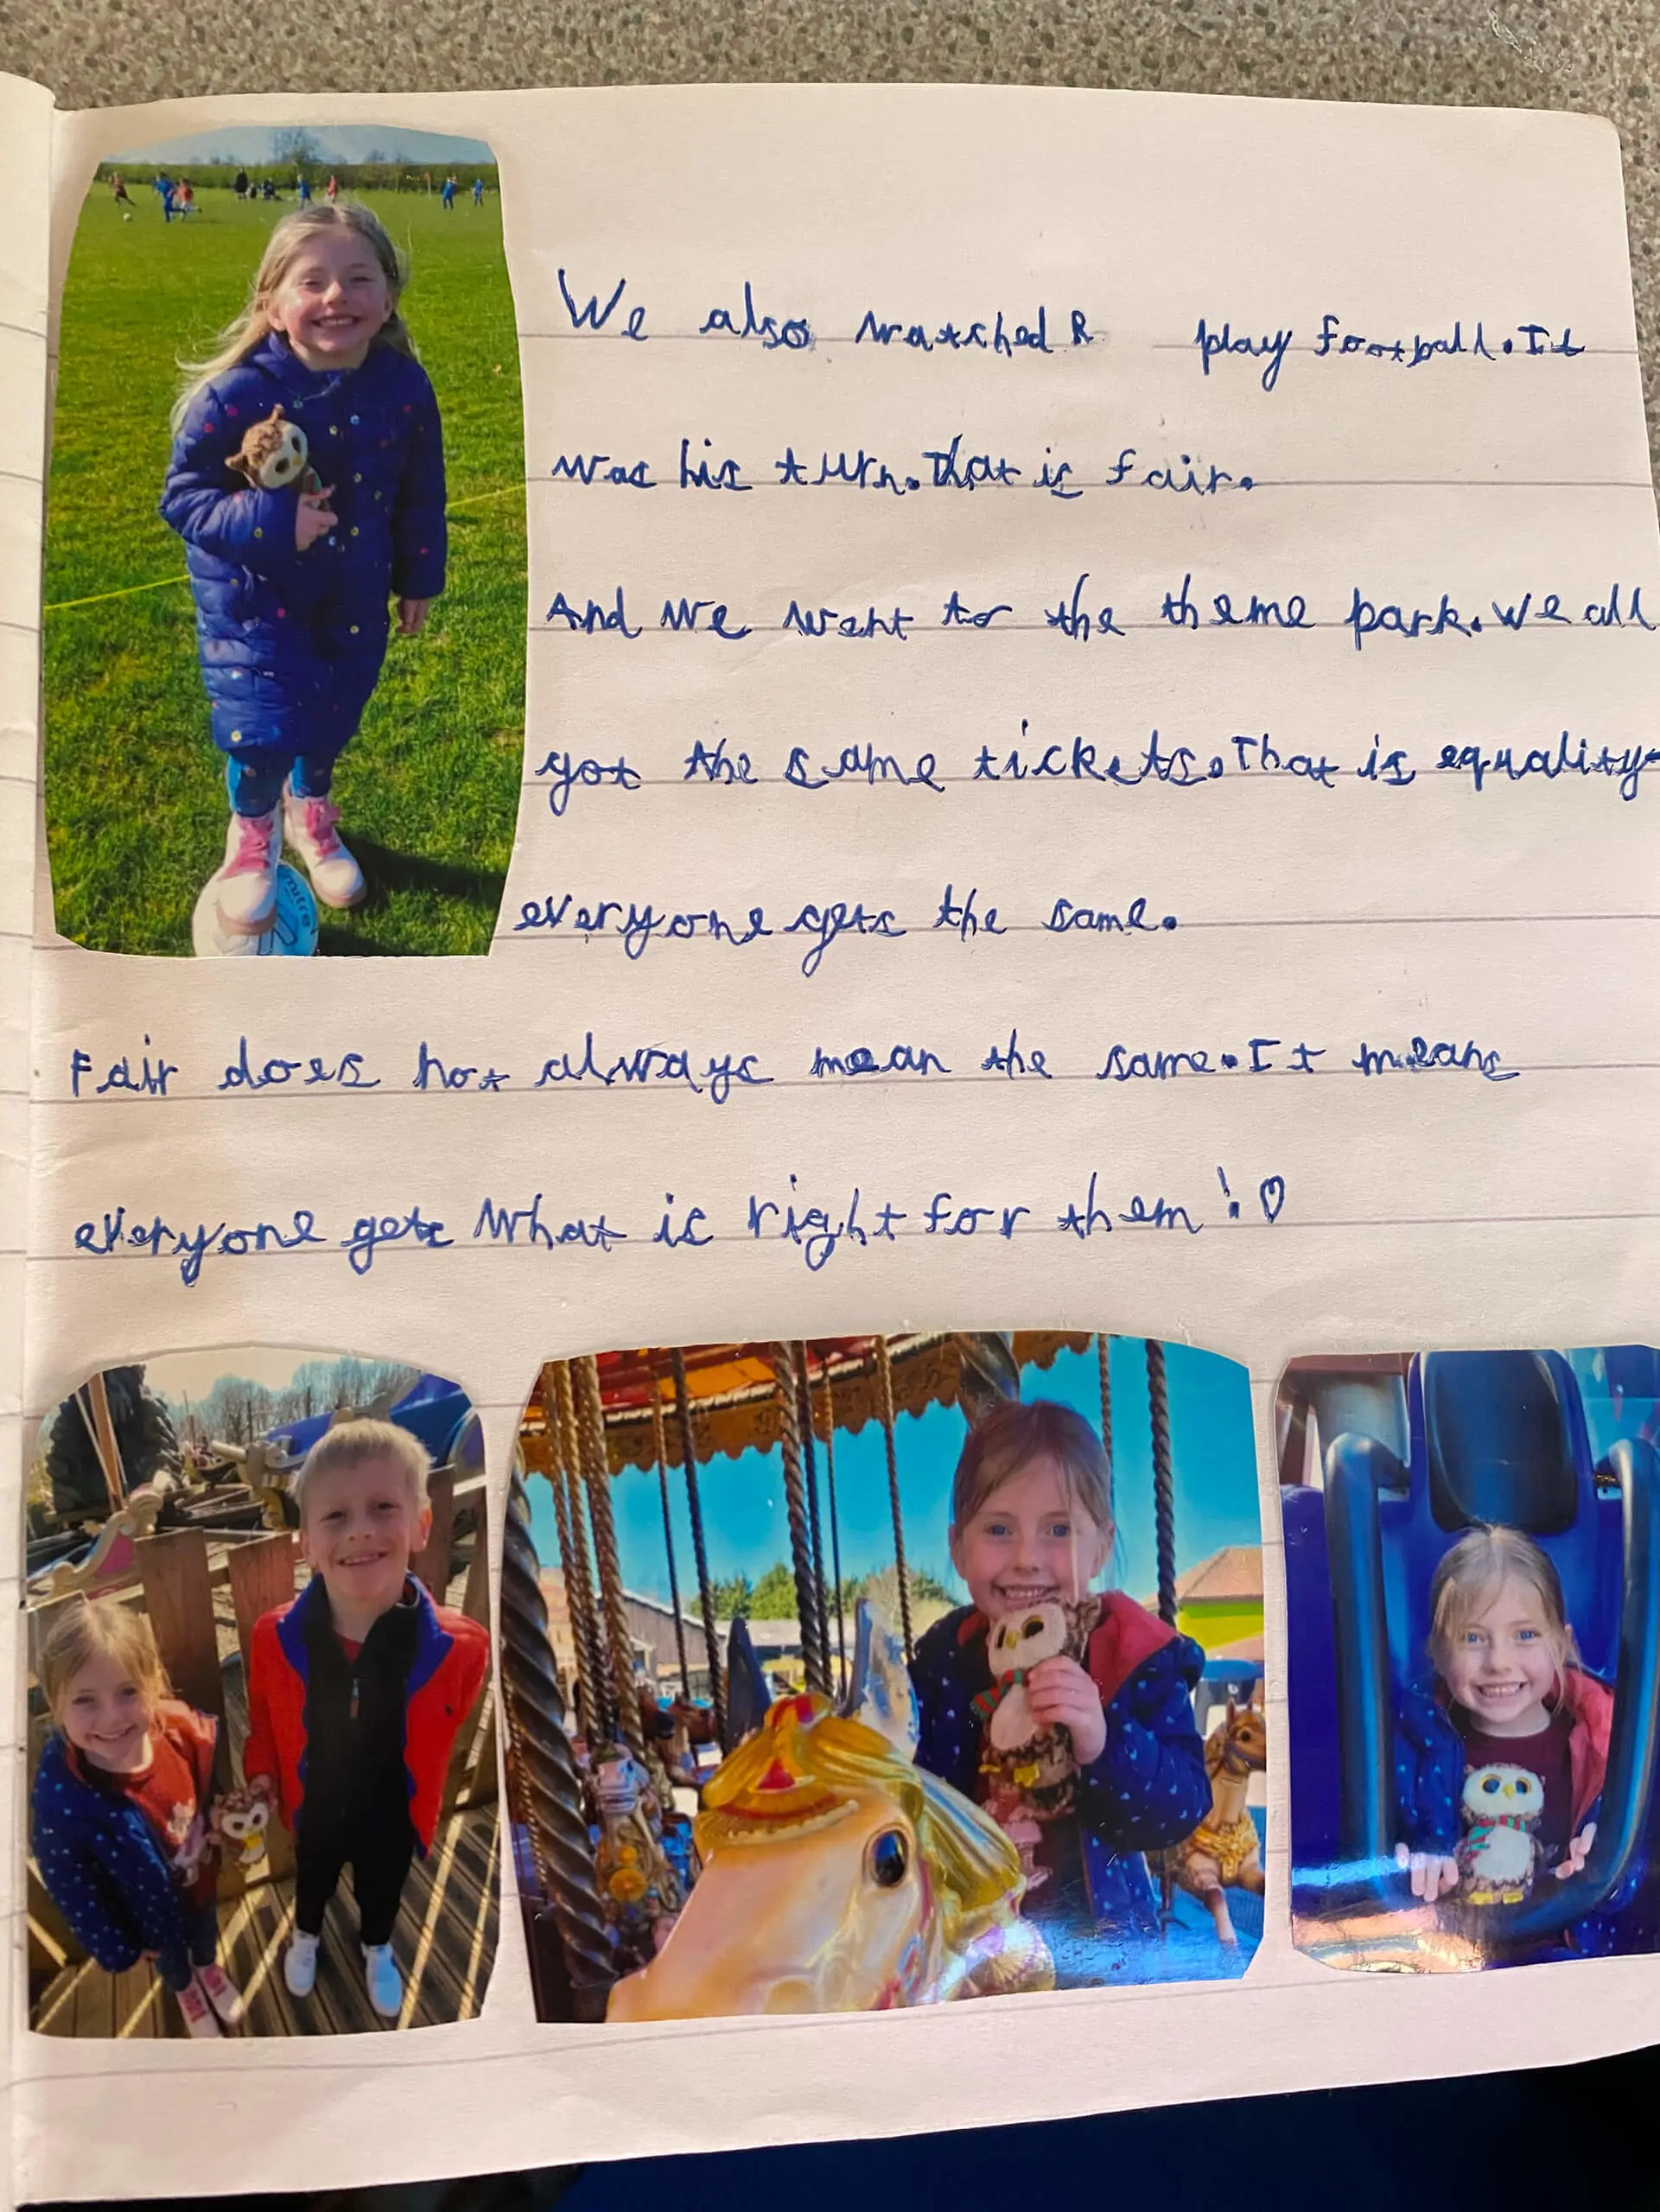 We also watched R play football. It
was his turn. That is fair.
And we went to the theme park. We all
got the same tickets. That is equality-
everyone gets the same.
Fair does not always mean the same. It means
everyone gets what is right for them! ♡
mitre